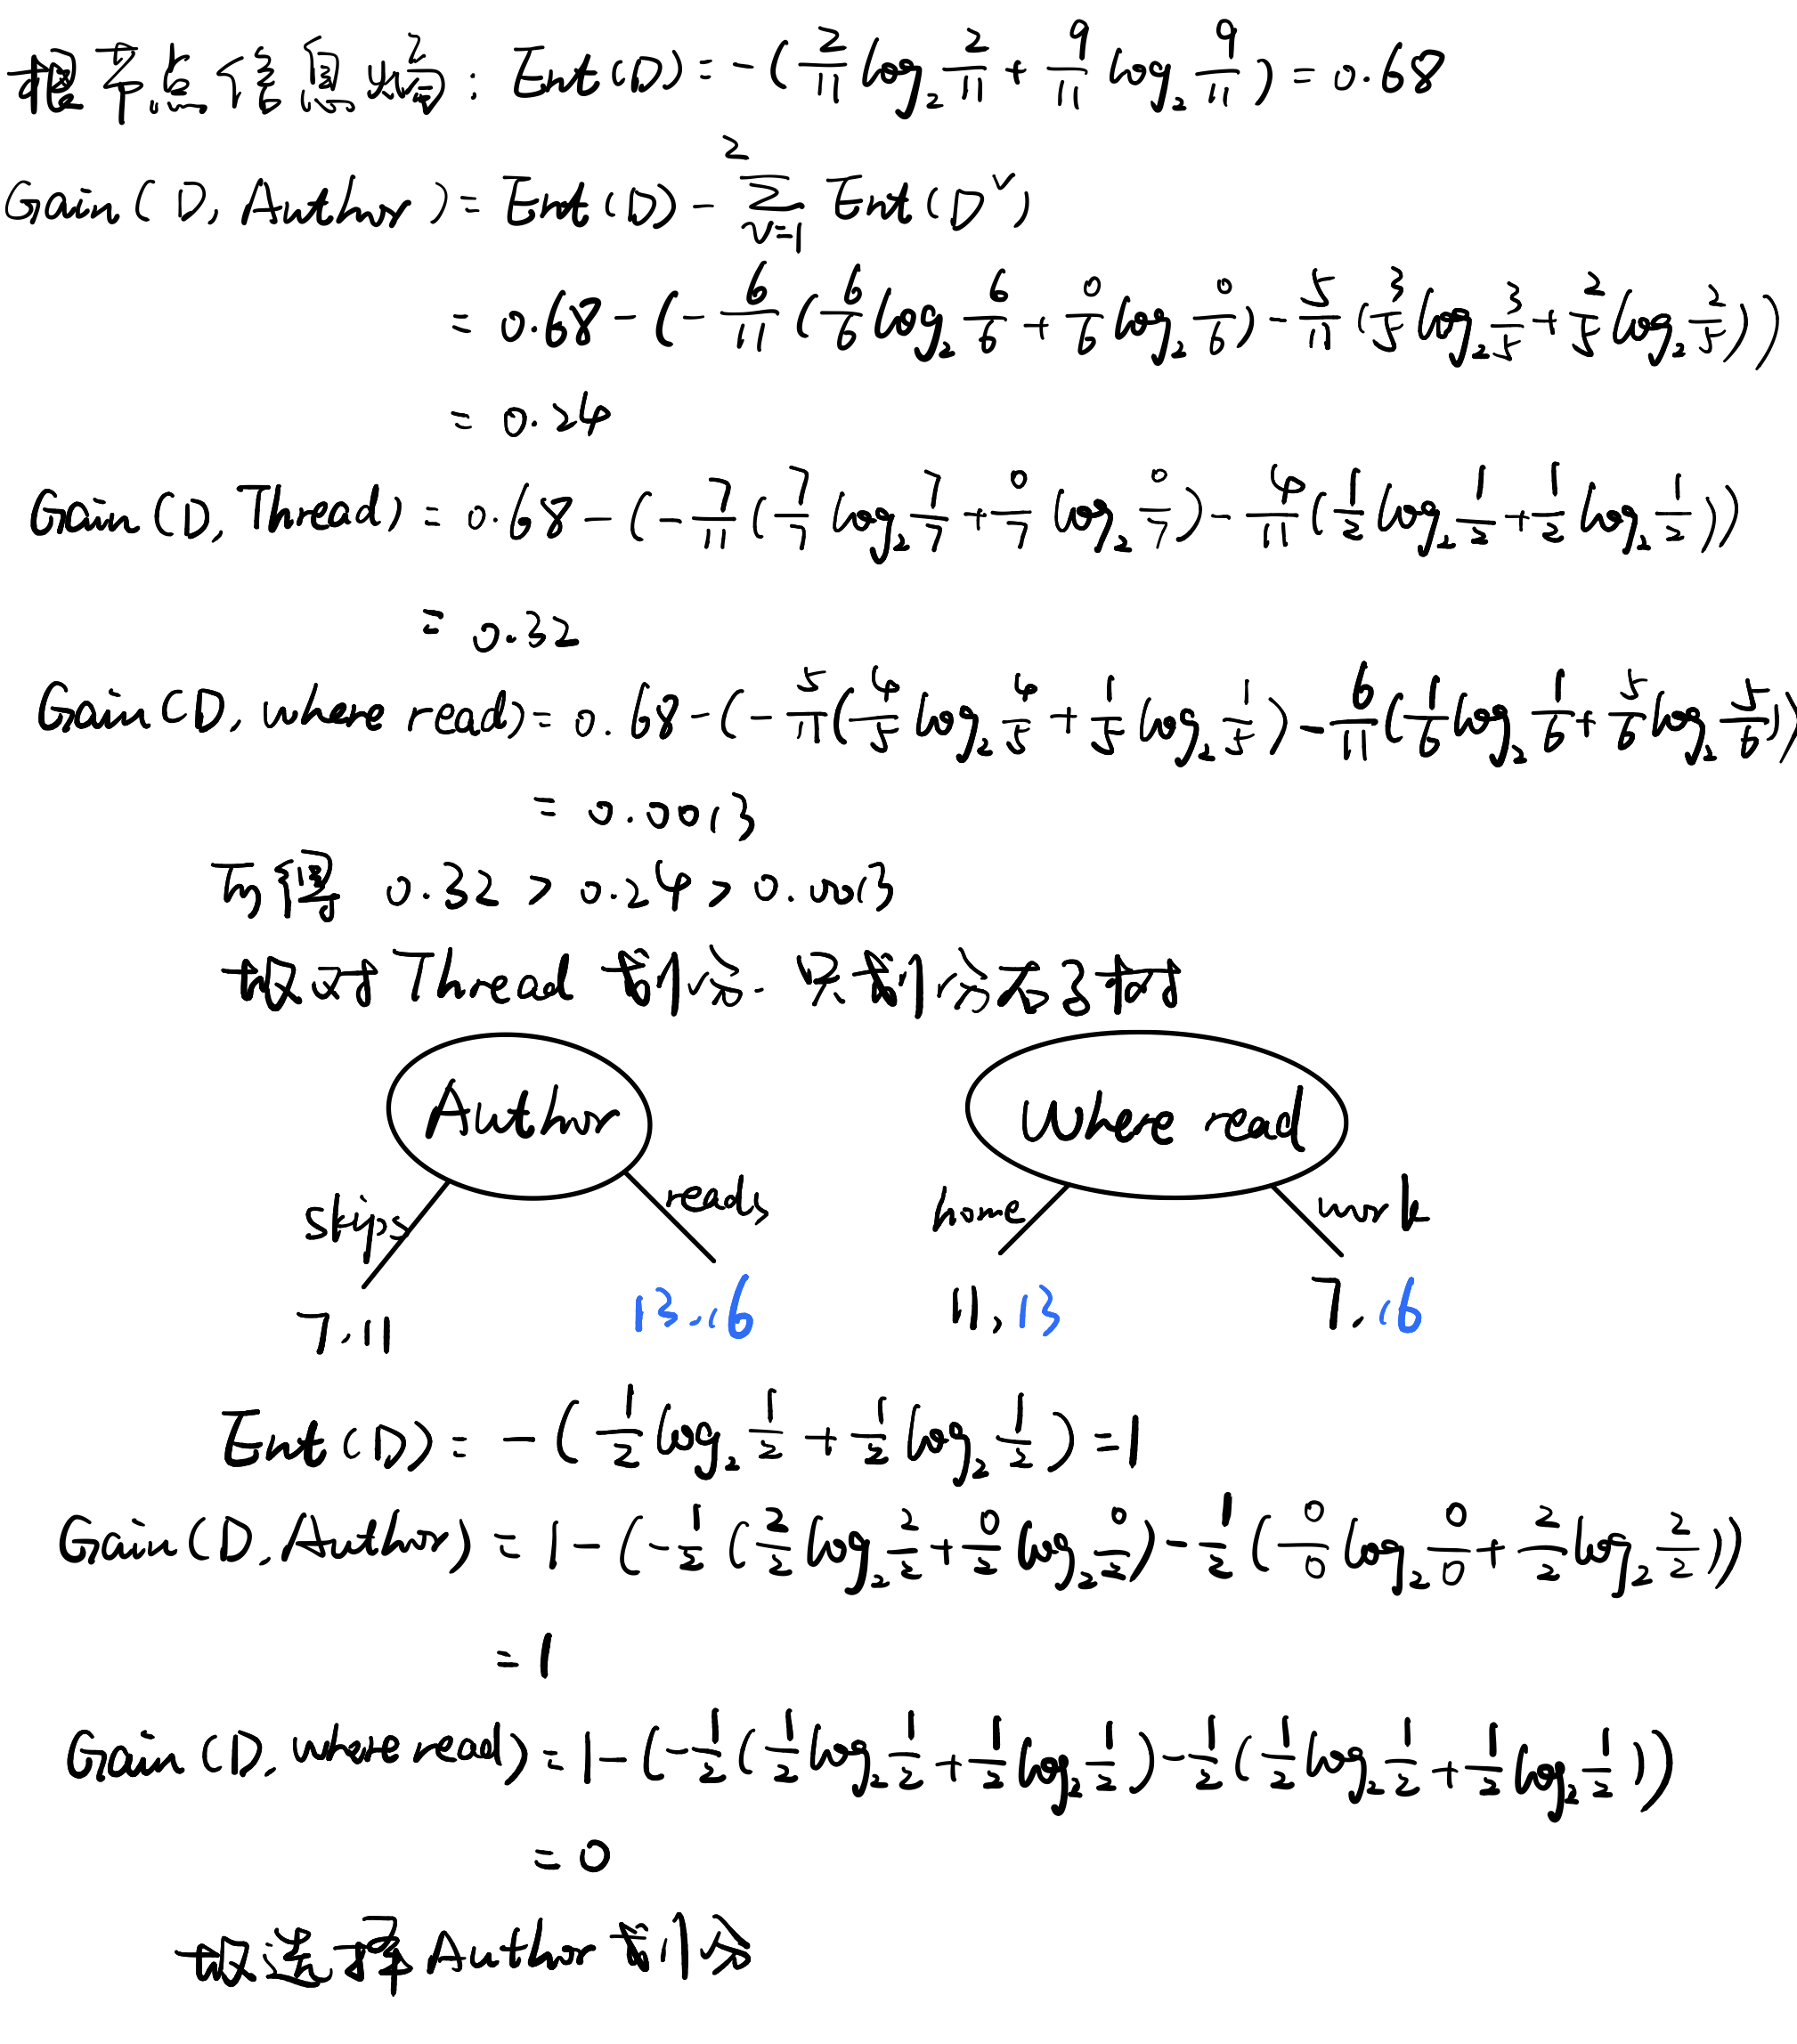 根节点信息熵：Ent(D) = -(2/11 log₂ 2/11 + 9/11 log₂ 9/11) = 0.68
Gain(D, Author) = Ent(D) - Σ_{v=1}^{2} Ent(D^v)
= 0.68 - (-6/11 (6/6 log₂ 6/6 + 0/6 log₂ 0/6) - 5/11 (3/5 log₂ 3/5 + 2/5 log₂ 2/5))
= 0.24
Gain(D, Thread) = 0.68 - (-7/11 (7/7 log₂ 7/7 + 0/7 log₂ 0/7) - 4/11 (1/2 log₂ 1/2 + 1/2 log₂ 1/2))
= 0.32
Gain(D, where read) = 0.68 - (-5/11 (4/5 log₂ 4/5 + 1/5 log₂ 1/5) - 6/11 (1/6 log₂ 1/6 + 5/6 log₂ 5/6))
= 0.0013
可得 0.32 > 0.24 > 0.0013
故对 Thread 划分. 只划分右子树
Author
Where read
skips
reads
home
work
7.11
13.16
11,13
7.16
Ent(D) = -(1/2 log₂ 1/2 + 1/2 log₂ 1/2) = 1
Gain(D, Author) = 1 - (-1/2 (2/2 log₂ 2/2 + 0/2 log₂ 0/2) - 1/2 (0/0 log₂ 0/0 + 2/2 log₂ 2/2))
= 1
Gain(D, where read) = 1 - (-1/2 (1/2 log₂ 1/2 + 1/2 log₂ 1/2) - 1/2 (1/2 log₂ 1/2 + 1/2 log₂ 1/2))
= 0
故选择 Author 划分